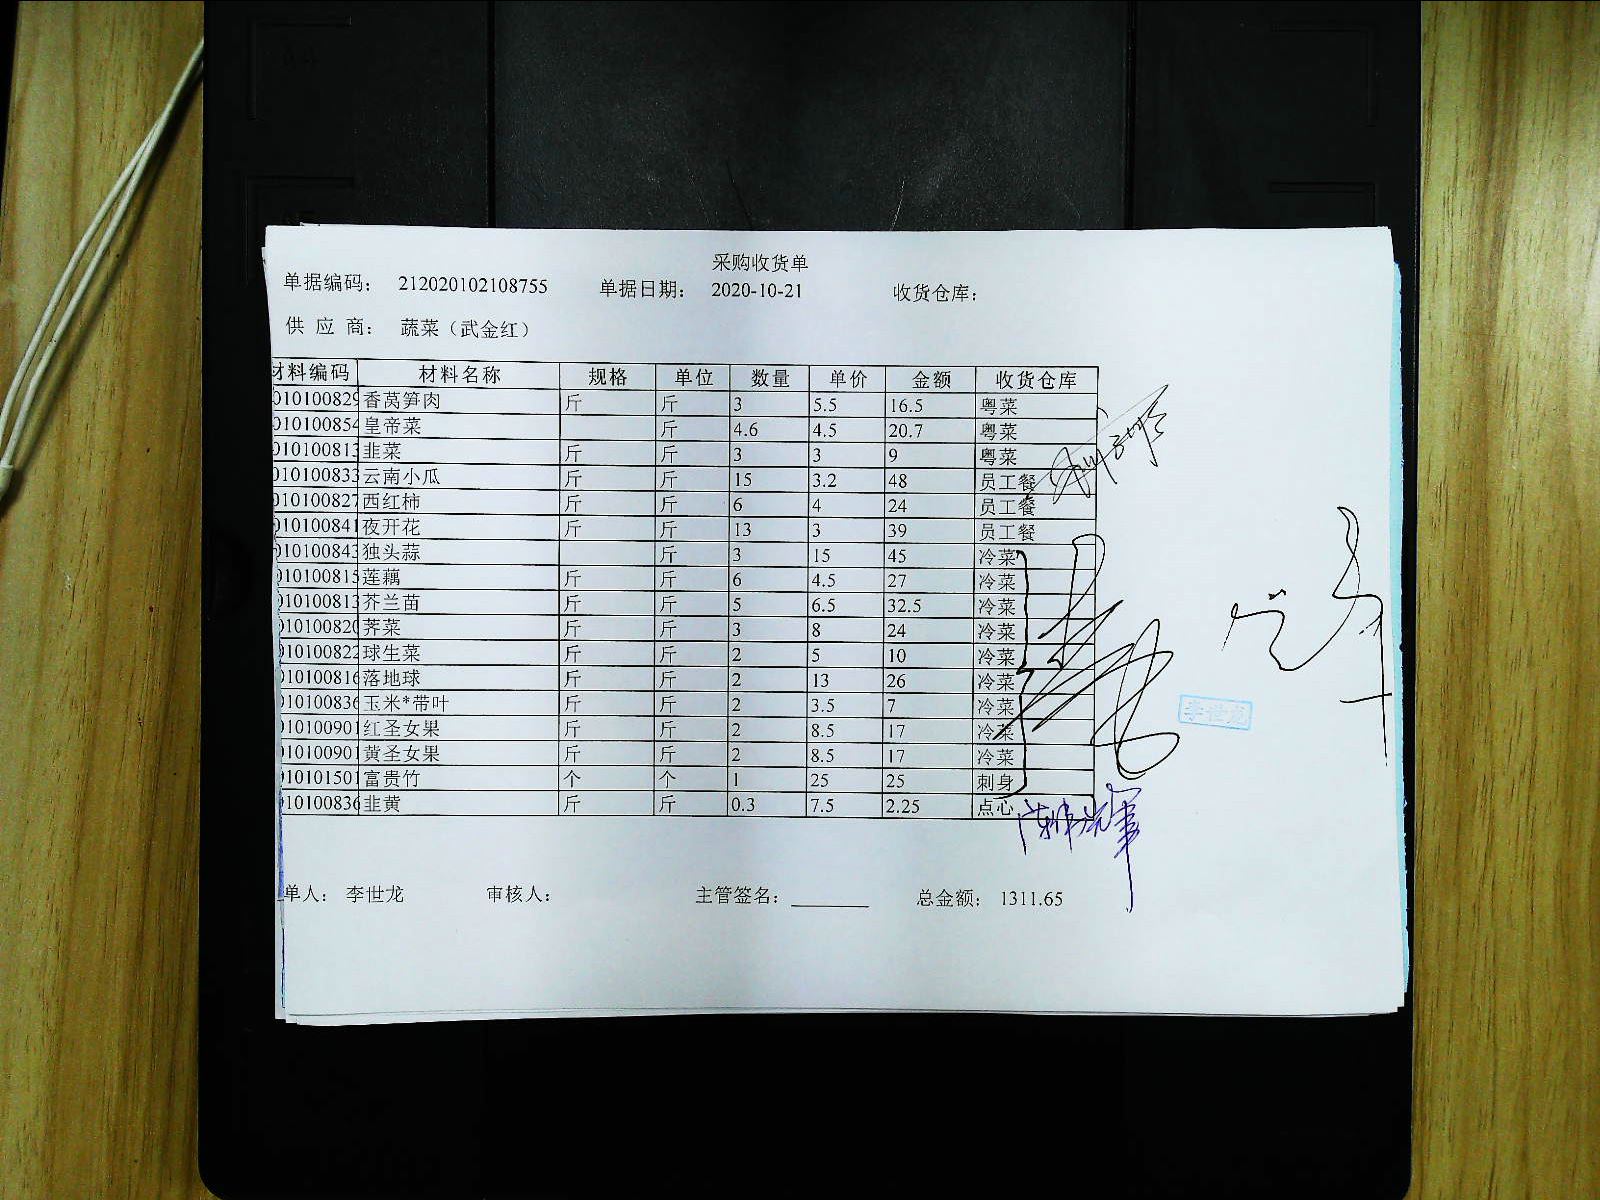 采购收货单
单据编码： 212020102108755 单据日期： 2020-10-21 收货仓库：
供 应 商： 蔬菜（武金红）
材料编码 材料名称 规格 单位 数量 单价 金额 收货仓库
010100829 香莴笋肉 斤 斤 3 5.5 16.5 粤菜
010100854 皇帝菜 斤 4.6 4.5 20.7 粤菜
010100813 韭菜 斤 斤 3 3 9 粤菜
010100833 云南小瓜 斤 斤 15 3.2 48 员工餐
010100827 西红柿 斤 斤 6 4 24 员工餐
010100841 夜开花 斤 斤 13 3 39 员工餐
010100843 独头蒜 斤 3 15 45 冷菜
010100815 莲藕 斤 斤 6 4.5 27 冷菜
010100813 芥兰苗 斤 斤 5 6.5 32.5 冷菜
010100820 荠菜 斤 斤 3 8 24 冷菜
010100822 球生菜 斤 斤 2 5 10 冷菜
010100816 落地球 斤 斤 2 13 26 冷菜
010100836 玉米*带叶 斤 斤 2 3.5 7 冷菜
010100901 红圣女果 斤 斤 2 8.5 17 冷菜
010100901 黄圣女果 斤 斤 2 8.5 17 冷菜
010101501 富贵竹 个 个 1 25 25 刺身
010100836 韭黄 斤 斤 0.3 7.5 2.25 点心
李世龙
单人： 李世龙 审核人： 主管签名： 总金额： 1311.65